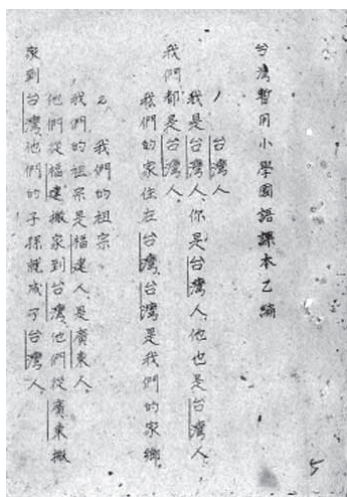 台灣暫用小學國語課本乙編
1 台灣人
我是台灣人、你是台灣人、他也是台灣人、
我們都是台灣人。
我們的家住在台灣、台灣是我們的家鄉。
2 我們的祖宗
我們的祖宗是福建人、是廣東人。
他們從福建搬家到台灣、他們從廣東搬
家到台灣、他們的子孫就成了台灣人。
5